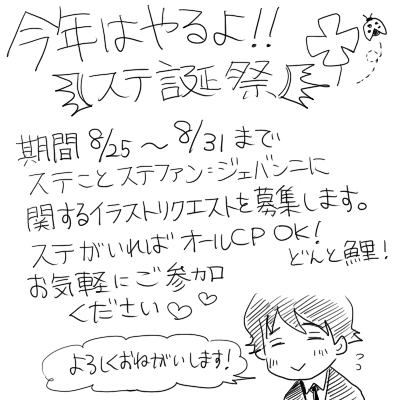 今年はやるよ!!
ステ誕祭
期間 8/25 〜 8/31 まで
ステことステファン=ジェバンニに
関するイラストリクエストを募集します。
ステがいれば オールCP OK!
どんと鯉!
お気軽にご参加
ください♡♡
よろしくおねがいします!